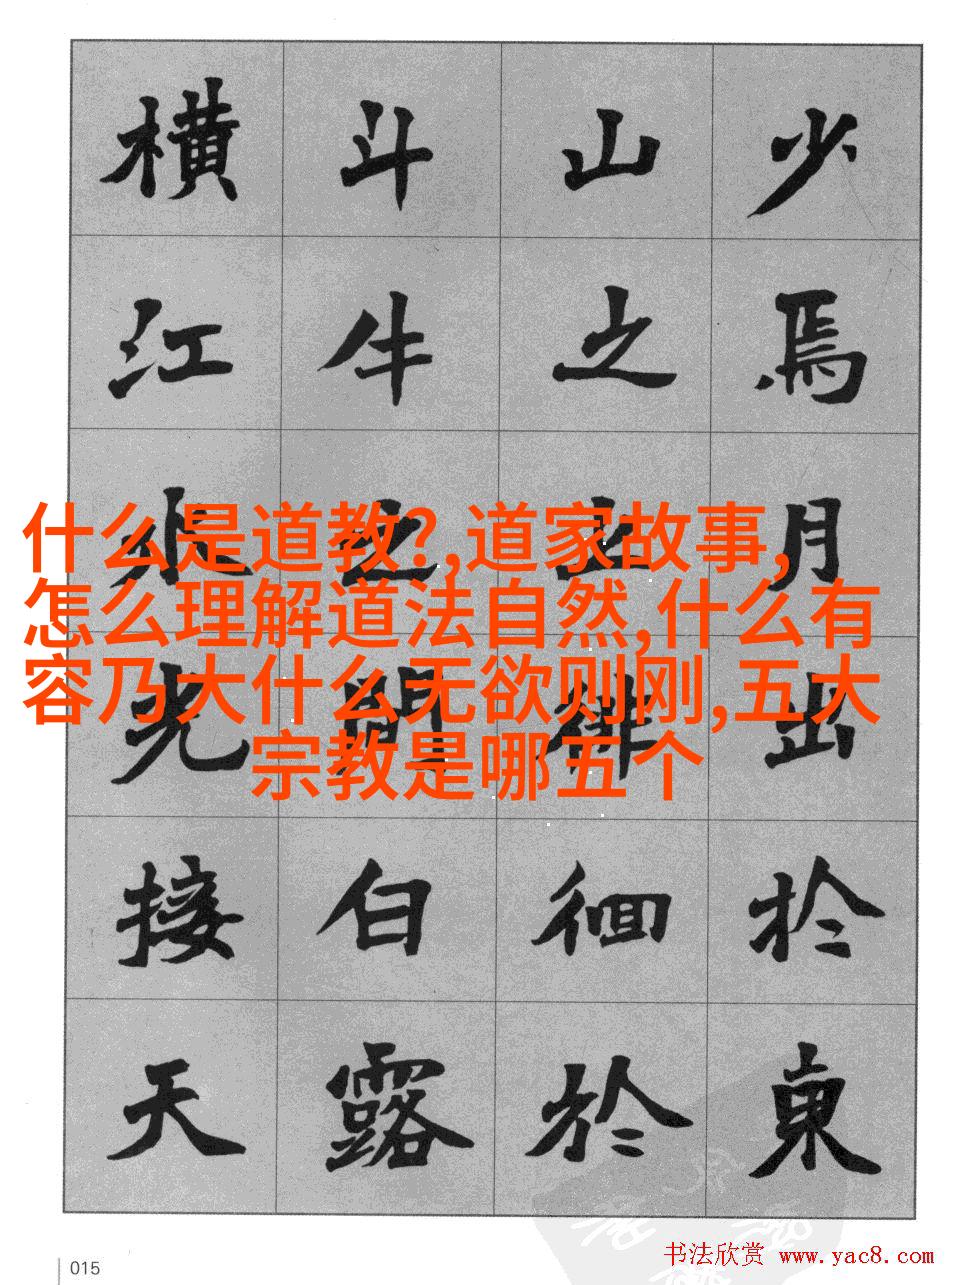 少焉月出於東
山之上徘徊於
斗牛之間白露
橫江水光接天
什么是道教?,道家故事,
怎么理解道法自然,什么有
容乃大什么无欲则刚,五大
宗教是哪五个
015
书法欣赏 www.yac8.com